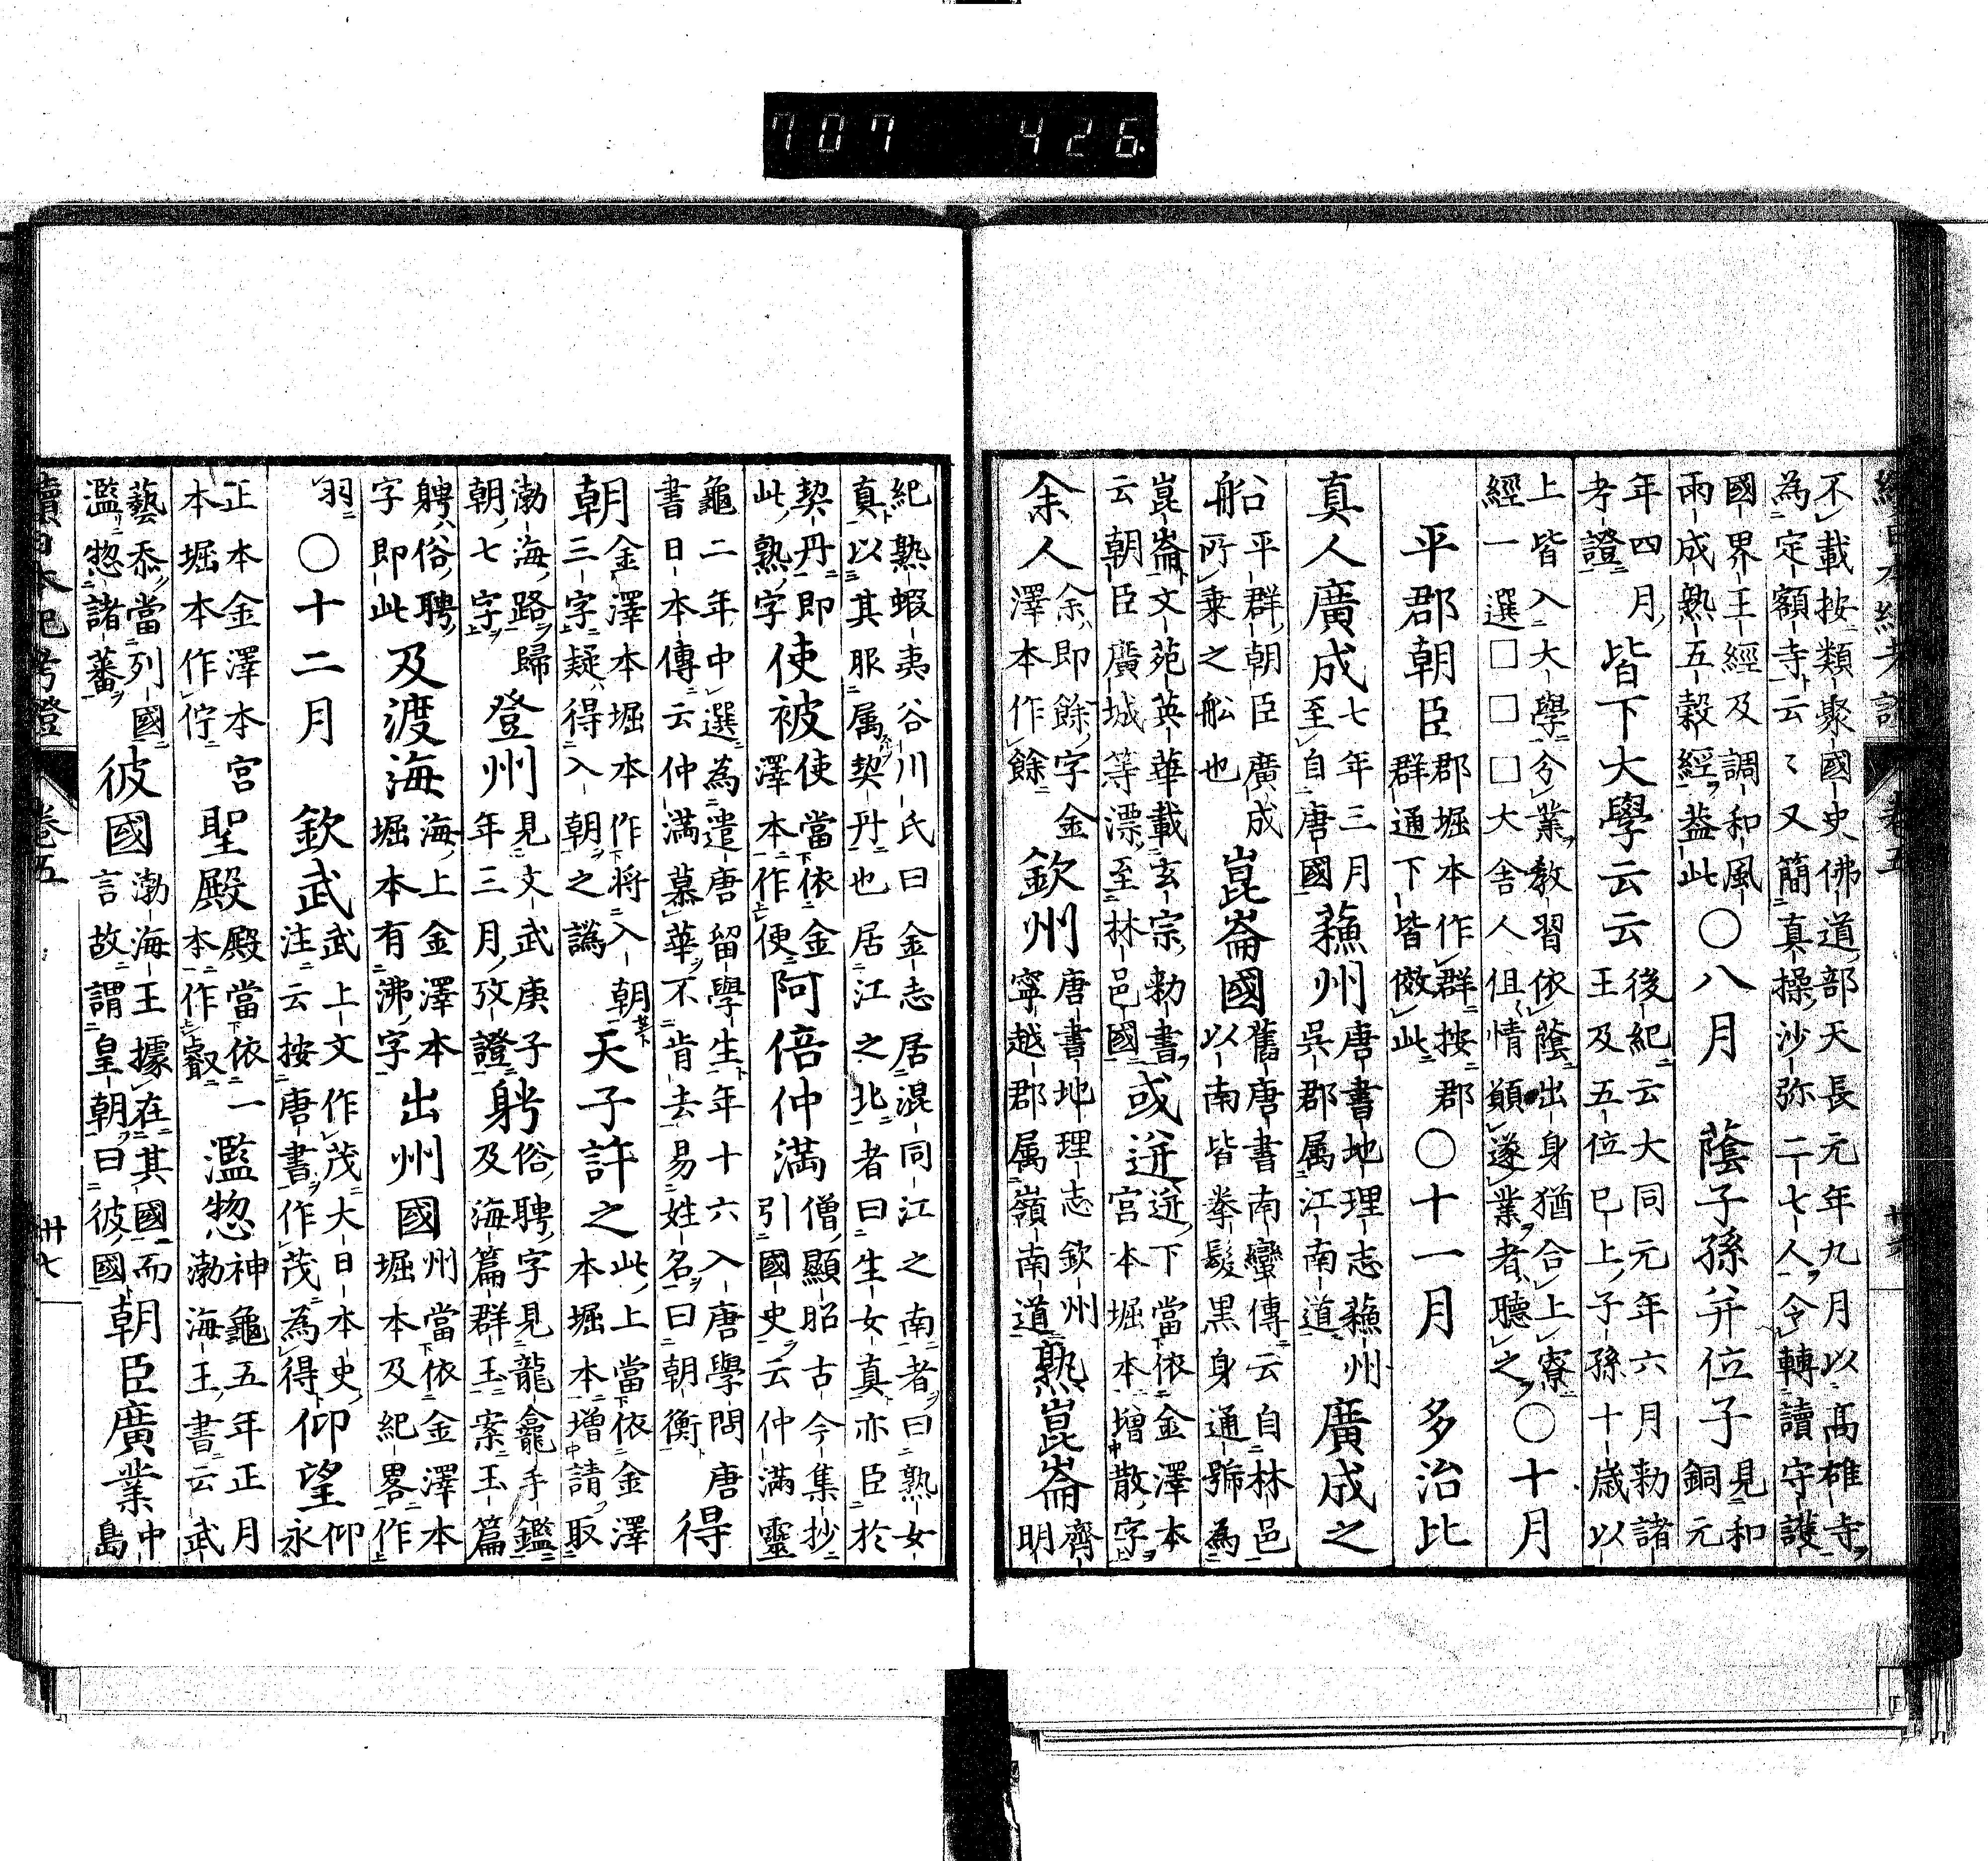 707 426
續日本紀考證 卷五 卅六
不載按類聚國史佛道部天長元年九月以髙雄寺
為定額寺云〻又簡真操沙弥二七人令轉讀守護
國界王經及調和風雨成熟五穀經蓋此○八月 蔭子孫并位子見和銅元
年四月考證 皆下大學云云後紀云大同元年六月勅諸王及五位已上子孫十歳以
上皆入大學兮業教習依蔭出身猶合上寮經一選□□□大舍人伹情願遂業者聽之○十月
平郡朝臣郡堀本作群按郡群通下皆傚此○十一月 多治比
真人廣成七年三月至自唐國 蘓州唐書地理志蘓州吳郡属江南道 廣成之
船平群朝臣廣成所乗之舩也 崑崙國舊唐書南蠻傳云自林邑以南皆拳髮黒身通號為
崑崙文苑英華載玄宗勅書云朝臣廣城等漂至林邑國 或迸迸下當依金澤本宮本堀本増散字
余人余即餘字金澤本作餘 欽州唐書地理志欽州寧越郡属嶺南道 熟崑崙齊明
紀熟蝦夷谷川氏曰金志居混同江之南者曰熟女
真以其服属契丹也居江之北者曰生女真亦臣於
契丹即此熟字 使被使當依金澤本作便 阿倍仲滿僧顯昭古今集抄引國史云仲満靈
龜二年中選為遣唐留學生年十六入唐學問唐書日本傳云仲満慕華不肯去易姓名曰朝衡 得
朝金澤本堀本作将入朝三字疑得入朝之譌 天子許之此上當依金澤本堀本増請取
渤海路歸朝七字 登州見文武庚子年三月攷證 躬俗聘字見龍龕手鑑及海篇群玉案玉篇
躬俗聘字即此 及渡海海上金澤本堀本有沸字 出州國州當依金澤本堀本及紀畧作
羽○十二月 欽武武上文作茂大日本史注云按唐書作茂為得 仰望仰永
正本金澤本宮本堀本作佇 聖殿殿當依一本作叡 濫惣神龜五年正月渤海王書云武
藝忝當列國濫惣諸蕃 彼國渤海王據在其國而言故謂皇朝曰彼國 朝臣廣業中島
續日本紀考證 卷五 卅七